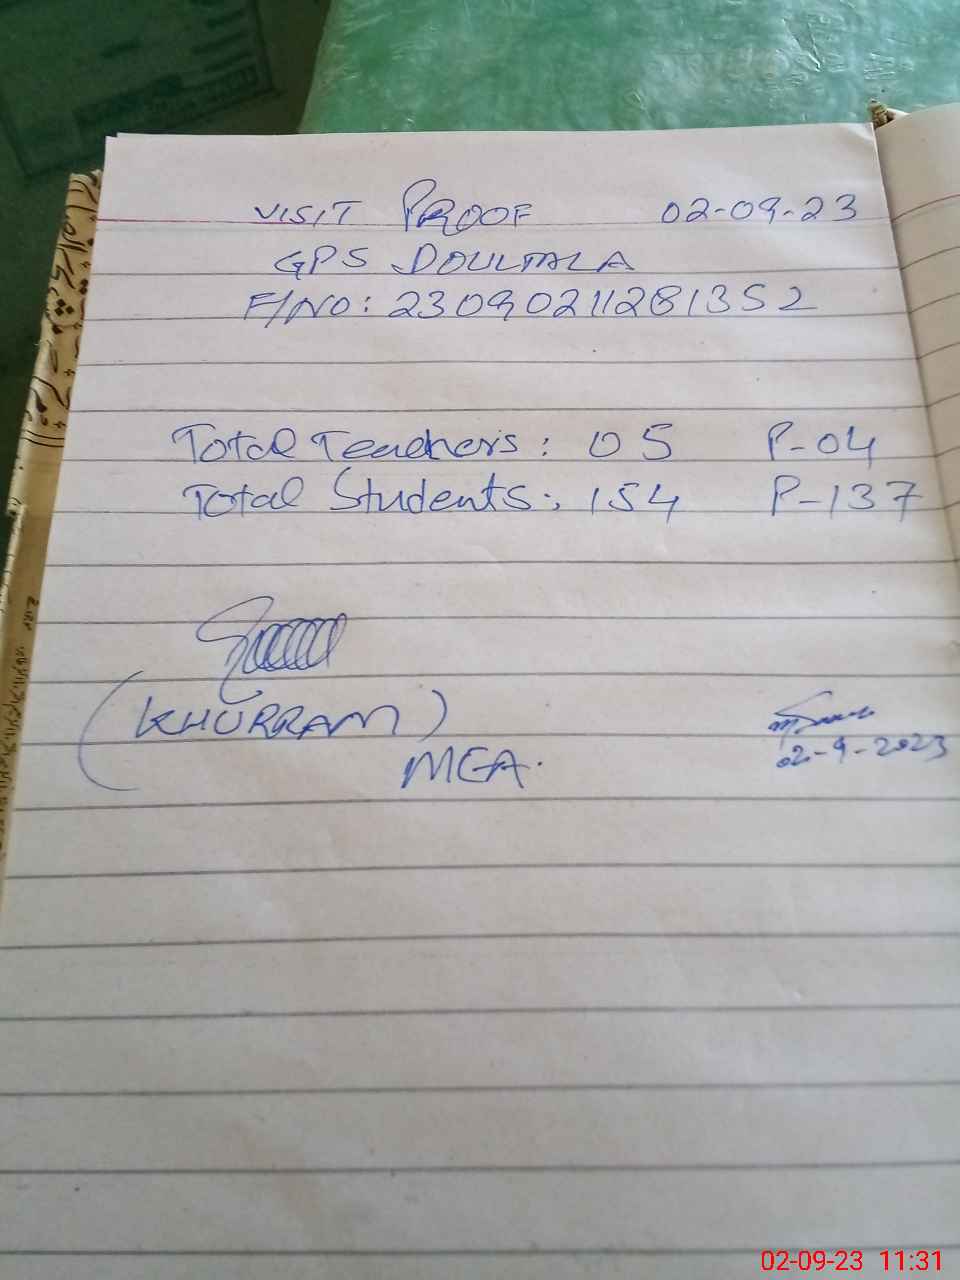 VISIT PROOF 02-09-23
GPS DOULTALA
F/NO: 23090211281352
Total Teachers: 05 P-04
Total Students: 154 P-137
(KHURRAM)
MEA.
02-9-2023
02-09-23 11:31